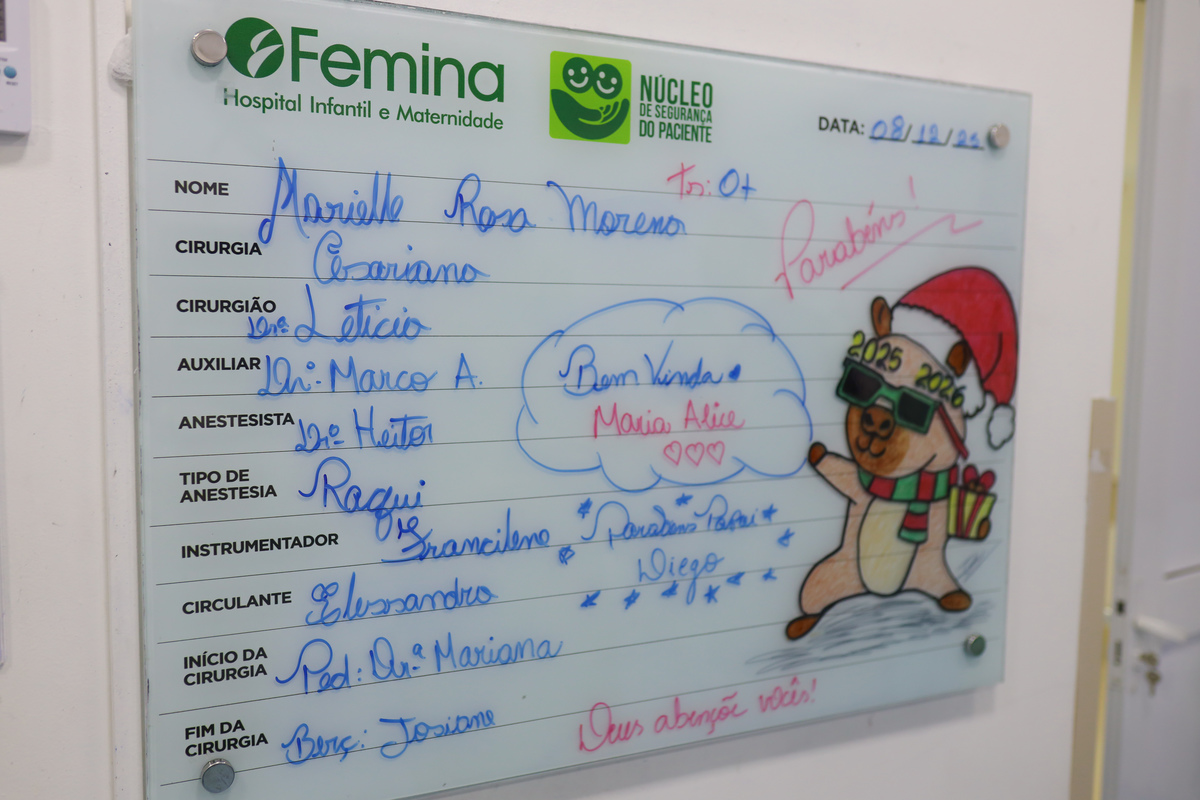 Femina
Hospital Infantil e Maternidade
NÚCLEO
DE SEGURANÇA
DO PACIENTE
DATA: 08/12/25
NOME Marielle Rosa Moreno Ts: O+
Parabéns!
CIRURGIA Cesariana
CIRURGIÃO Drª Letícia
AUXILIAR Drº. Marco A.
ANESTESISTA Drº Heitor
TIPO DE
ANESTESIA Raqui
INSTRUMENTADOR Francilene
CIRCULANTE Elessandra
INÍCIO DA
CIRURGIA Ped: Dr.ª Mariana
FIM DA
CIRURGIA Berç: Josiane
Bem Vinda
Maria Alice
Parabens Papai
Diego
2025
2026
Deus abençõe vocês!